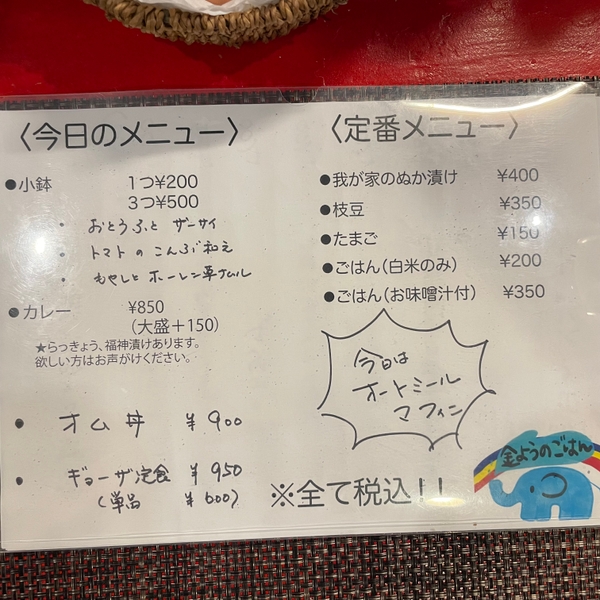 〈今日のメニュー〉
●小鉢 1つ¥200
3つ¥500
・ おとうふと ザーサイ
・ トマトの こんぶ和え
・ もやしと ホーレン草ナムル
●カレー ¥850
(大盛＋150)
★らっきょう、福神漬けあります。
欲しい方はお声がけください。
● オム丼 ¥900
● ギョーザ定食 ¥950
(単品 ¥600)
〈定番メニュー〉
●我が家のぬか漬け ¥400
●枝豆 ¥350
●たまご ¥150
●ごはん(白米のみ) ¥200
●ごはん(お味噌汁付) ¥350
今日は
オートミール
マフィン
※全て税込!!
金ようのごはん